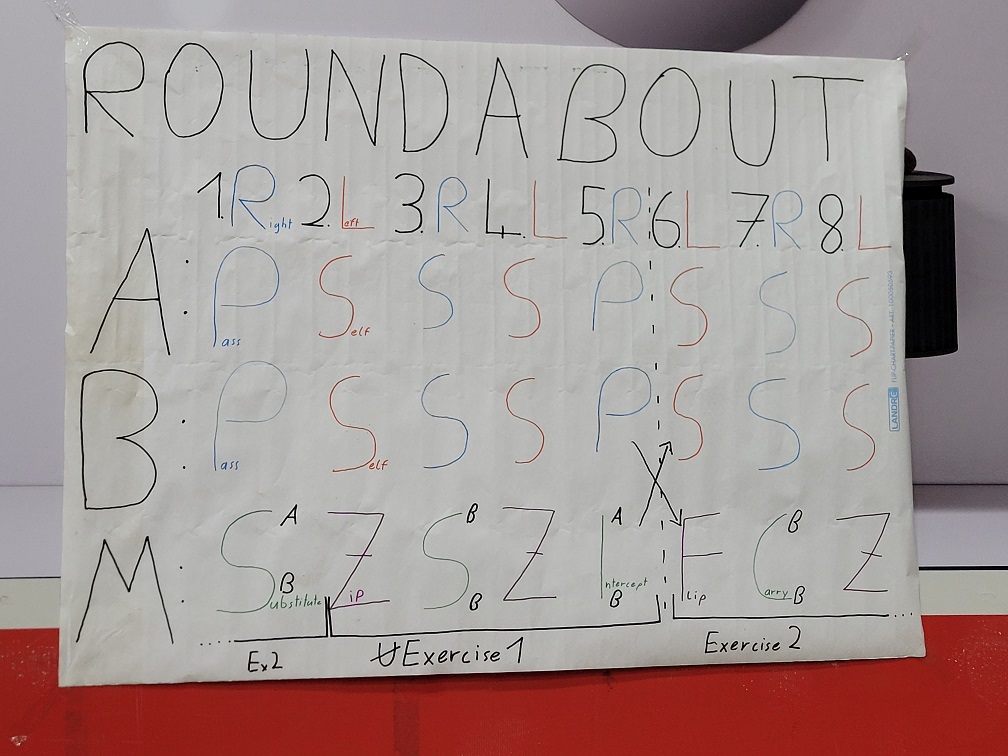 ROUNDABOUT
1.Right 2.Left 3.R 4.L 5.R 6.L 7.R 8.L
A: Pass Self S S P S S S
B: Pass Self S S P S S S
M: Substitute A B Zip S B B Z Intercept A B Flip Carry B B Z
Ex2 Exercise 1 Exercise 2
LANDRÉ FLIP-CHART-PAPIER - ART. 100050595